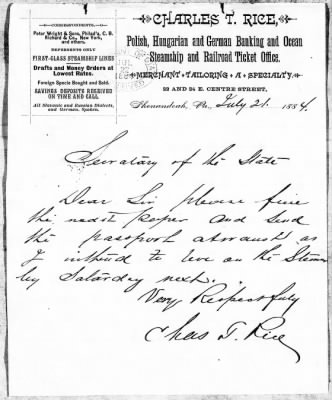 CORRESPONDENTS.
Peter Wright & Sons, Philad'a, C. B.
Richard & Co., New York,
and others.
REPRESENTS ONLY
FIRST-CLASS STEAMSHIP LINES
Drafts and Money Orders at
Lowest Rates.
Foreign Specie Bought and Sold.
SAVINGS DEPOSITS RECEIVED
ON TIME AND CALL.
All Slavonic and Russian Dialects,
and German, Spoken.
CHARLES T. RICE,
Polish, Hungarian and German Banking and Ocean
Steamship and Railroad Ticket Office.
MERCHANT TAILORING A SPECIALTY.
22 AND 24 E. CENTRE STREET,
Shenandoah, Pa., July 21. 1884.
Secratary of the State
Dear Sir please fine
the papper and send
the passport at as
I inthend to leve on the Steamer
by Saturday next.
Very Respectfuly
Chas T. Rice